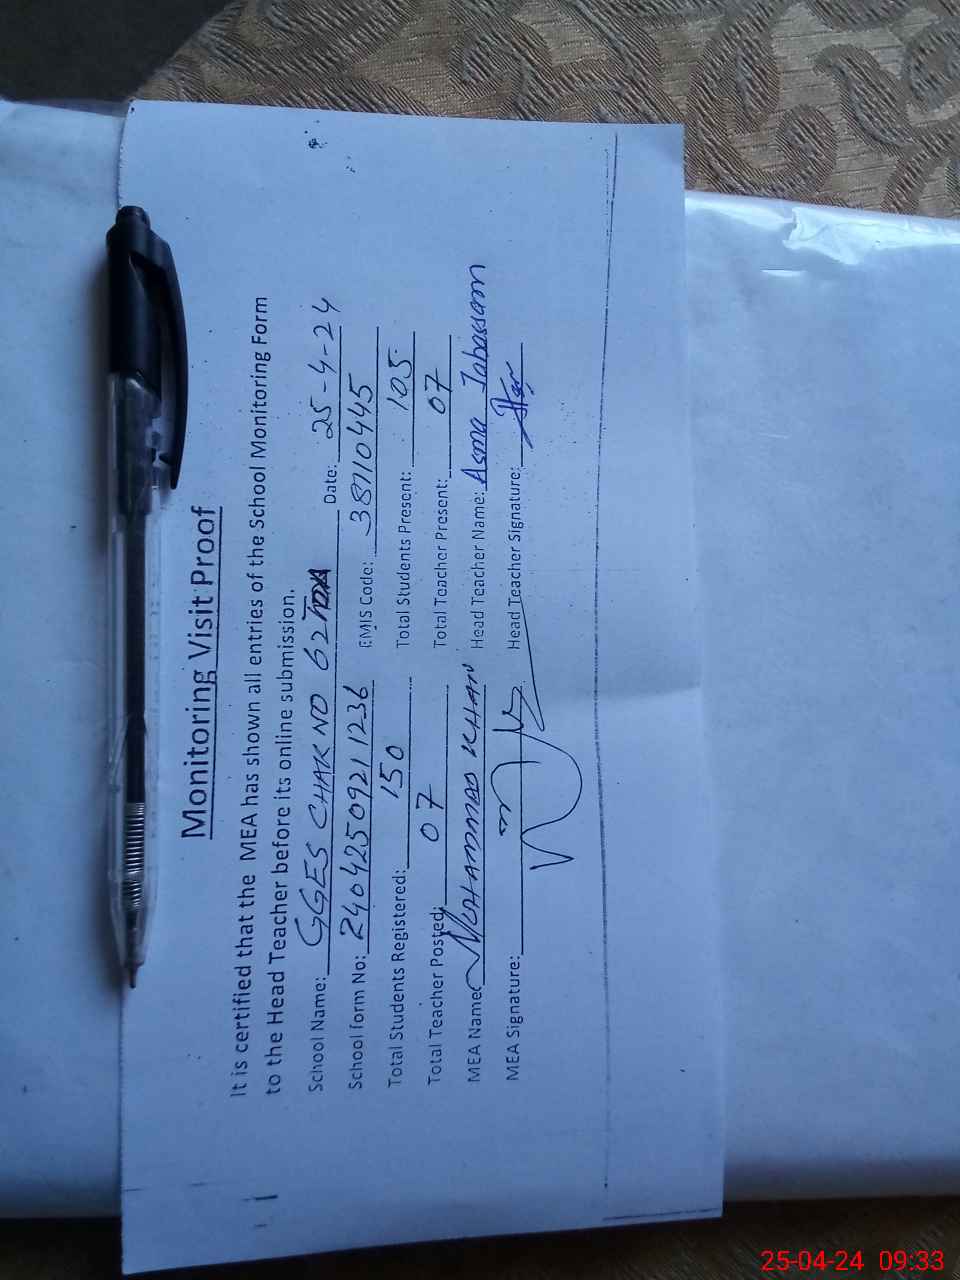 Monitoring Visit Proof
It is certified that the MEA has shown all entries of the School Monitoring Form
to the Head Teacher before its online submission.
School Name: GGES CHAK NO 62 Date: 25-4-24
School form No: 24042509211236 EMIS Code: 38110445
Total Students Registered: 150 Total Students Present: 105
Total Teacher Posted: 07 Total Teacher Present: 07
MEA Name: MUHAMMAD KHAN Head Teacher Name: Asma Tabassam
MEA Signature: Head Teacher Signature:
25-04-24 09:33